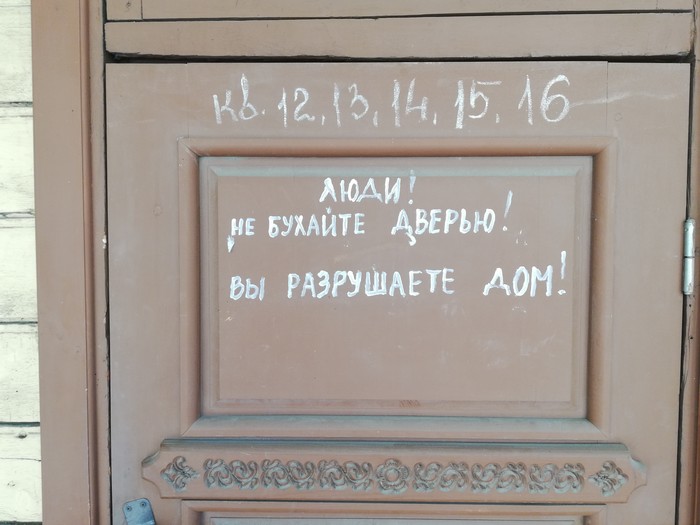 кв. 12, 13, 14, 15, 16
ЛЮДИ!
НЕ БУХАЙТЕ ДВЕРЬЮ!
ВЫ РАЗРУШАЕТЕ ДОМ!